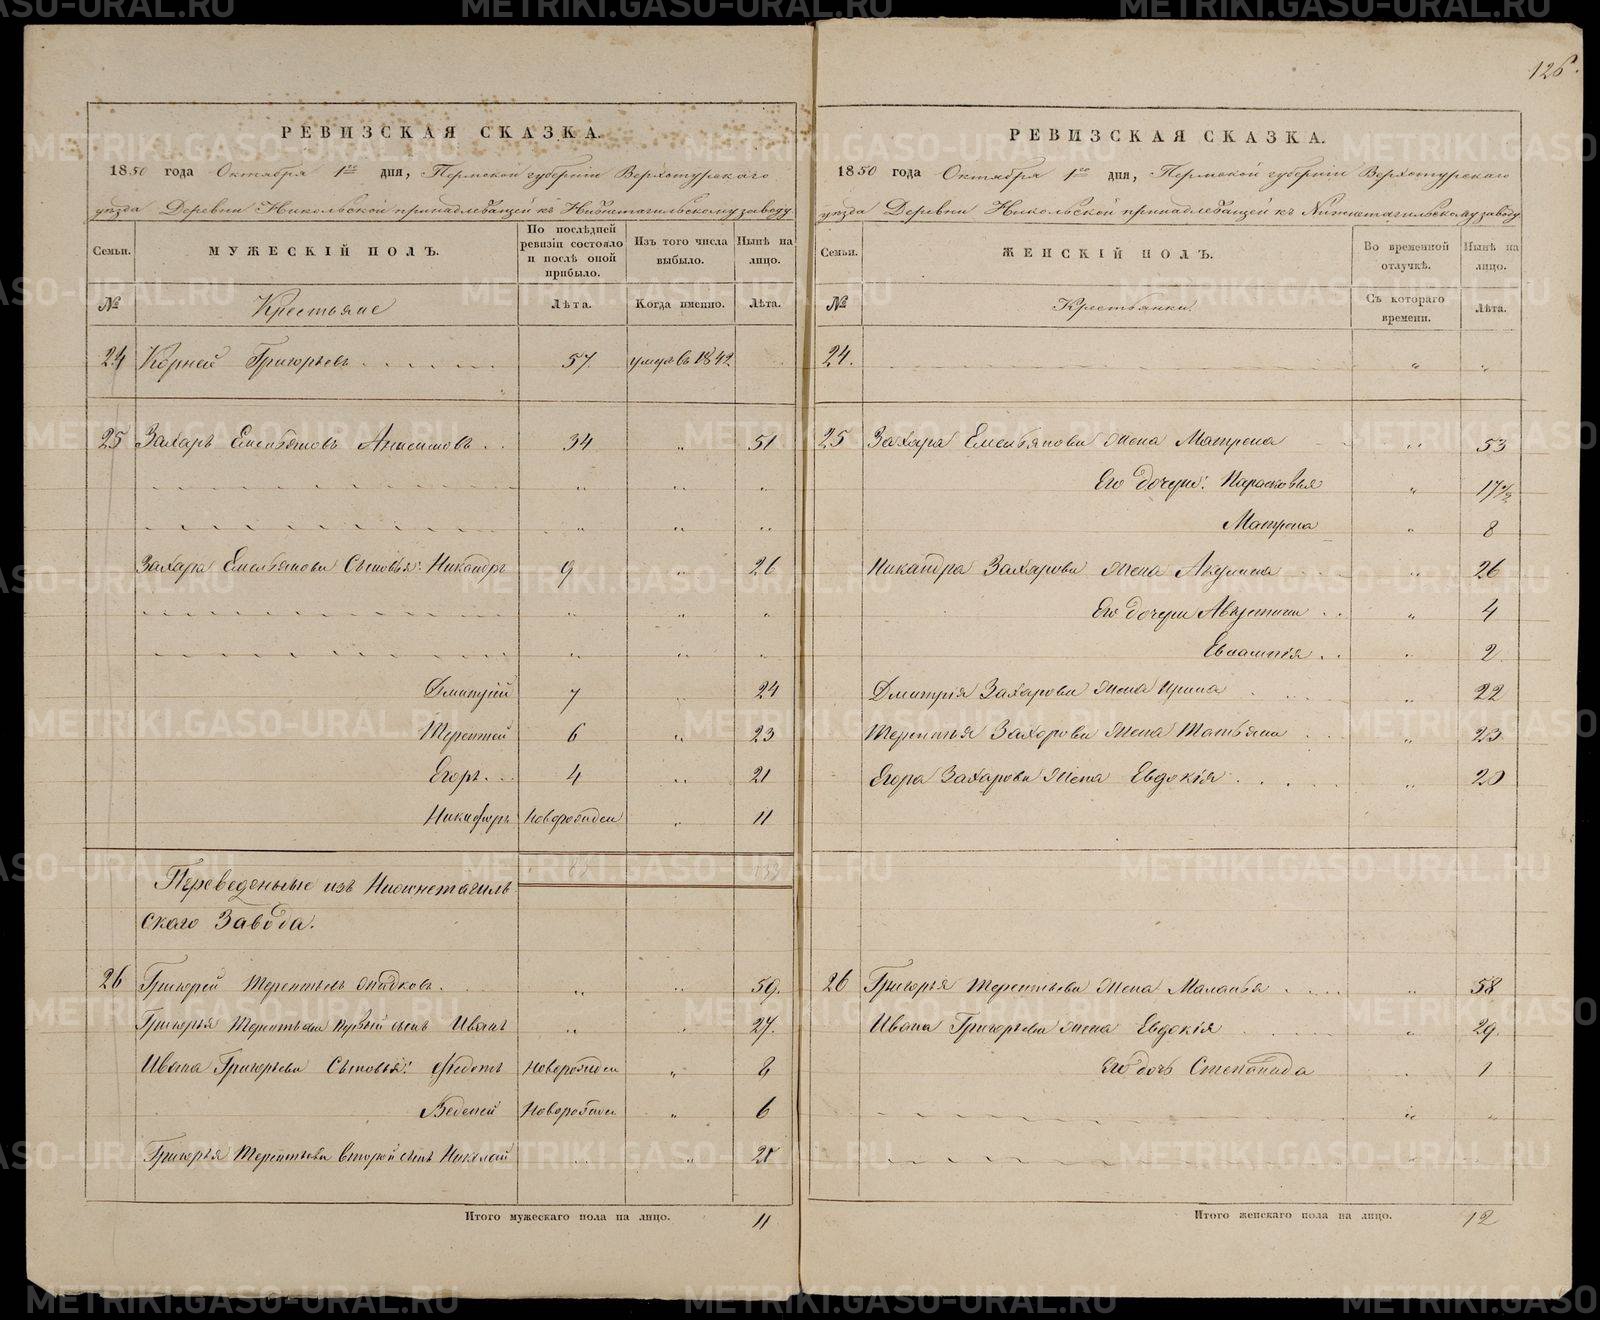 126.
РЕВИЗСКАЯ СКАЗКА.
1850 года Октября 1го дня, Пермской губерніи Верхотурскаго
уезда Деревни Никольской принадлежащей къ Нижнетагильскому заводу
Семьи. МУЖЕСКІЙ ПОЛЪ. По послѣдней ревизіи состояло и послѣ оной прибыло. Изъ того числа выбыло. Нынѣ на лицо.
№ Крестьяне Лѣта. Когда именно. Лѣта.
24 Корней Григорьевъ 57. умулъ въ 1842
25 Захаръ Емельяновъ Анисимовъ 34 " 51
Захара Емельянова Сыновья: Никандръ 9 " 26
Дмитрій 7 " 24
Терентей 6 " 23
Егоръ 4 " 21
Никифоръ новорожден " 11
Переведеныые изъ Нижнетагиль
скаго Завода.
26 Григорей Терентьевъ " " 59.
Григорья Терентьева первый сынъ Иванъ " " 27.
Ивана Григорьева Сыновья: Федотъ новорожден " 8
Веденей новорожден " 6
Григорья Терентьева второй сынъ Николай " 21
Итого мужескаго пола на лицо. 11
РЕВИЗСКАЯ СКАЗКА.
1850 года Октября 1го дня, Пермской губерніи Верхотурскаго
уезда Деревни Никольской принадлежащей къ Нижнетагильскому заводу
Семьи. ЖЕНСКІЙ ПОЛЪ. Во временной отлучкѣ. Нынѣ на лицо.
№ Крестьянки. Съ котораго времени. Лѣта.
24. " "
25 Захара Емельянова жена Матрена " 53
Его дочери: Парасковья " 17 1/2
Матрена " 8
Никандра Захарова жена Акулина " 26
Его дочери Августина " 4
Евлампія " 2
Дмитрія Захарова жена Ирина 22
Терентья Захарова жена Татьяна " 23
Егора Захарова жена Евдокія " 20
26 Григорья Терентьева жена Маланья " 58
Ивана Григорьева жена Евдокія " 29.
Его дочь Степанида 1
Итого женскаго пола на лицо. 12
METRIKI.GASO-URAL.RU